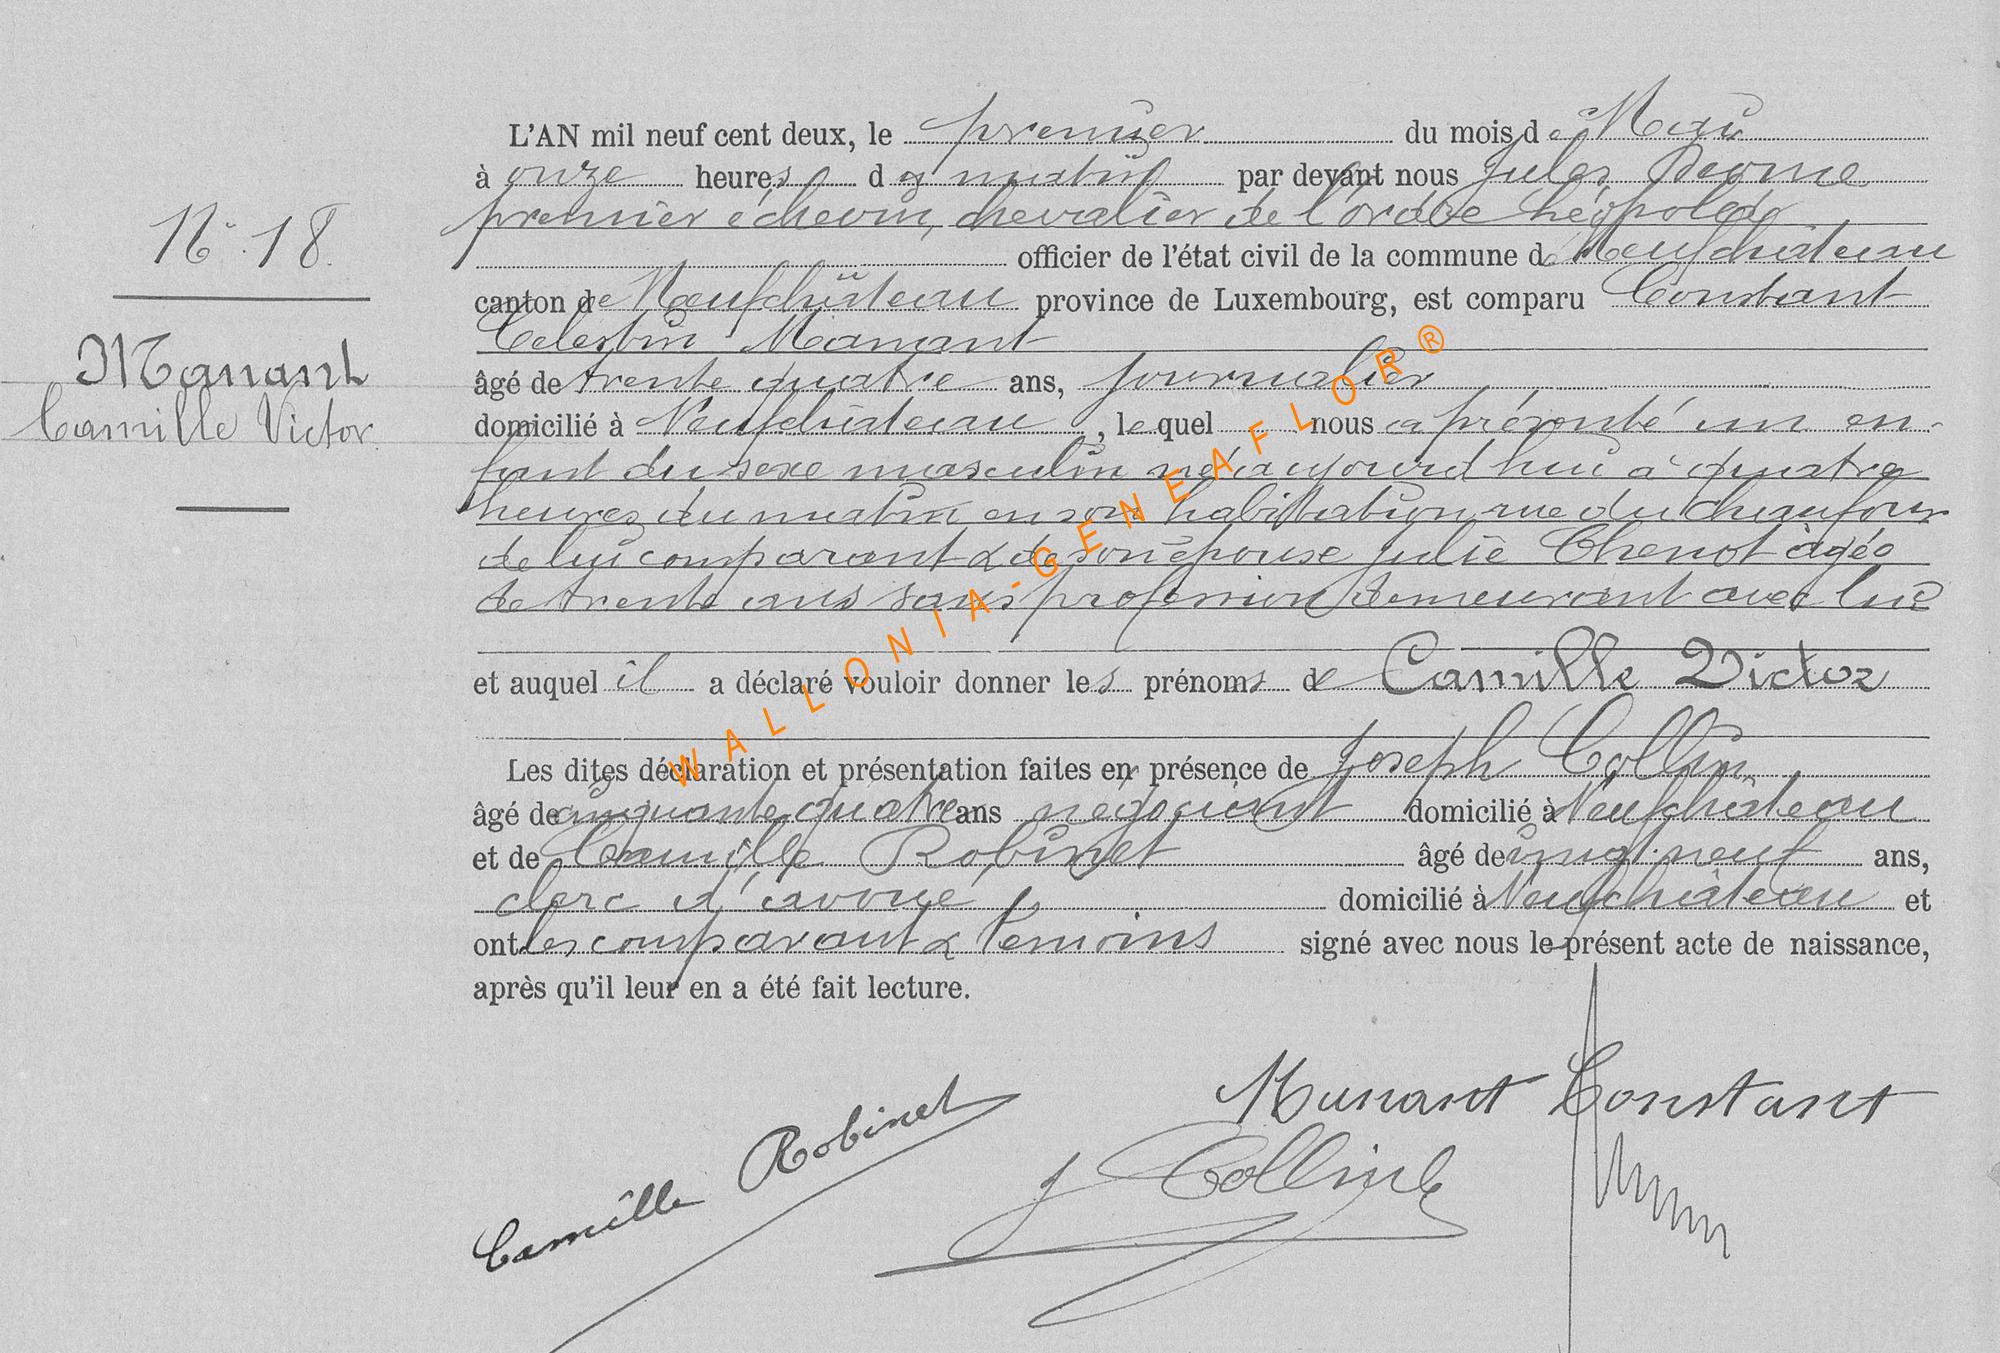 L'AN mil neuf cent deux, le premier du mois de Mai
à onze heures du matin par devant nous Jules
premier échevin, chevalier de l'ordre Léopold,
officier de l'état civil de la commune de Neufchâteau
canton de Neufchâteau province de Luxembourg, est comparu Constant
Célestin Manant
âgé de trente quatre ans, journalier
domicilié à Neufchâteau, lequel nous a présenté un en-
fant du sexe masculin né aujourd'hui à quatre
heures du matin en son habitation rue du chaufour
de lui comparant & de son épouse Julie Chenot âgée
de trente ans sans profession demeurant avec lui
et auquel il a déclaré vouloir donner les prénoms de Camille Victor
Les dites déclaration et présentation faites en présence de Joseph Collin,
âgé de cinquante quatre ans négociant domicilié à Neufchâteau
et de Camille Robinet âgé de vingt neuf ans,
clerc d'avoué domicilié à Neufchâteau et
ont les comparant & témoins signé avec nous le présent acte de naissance,
après qu'il leur en a été fait lecture.
No. 18.
Manant
Camille Victor
Manant Constant
Camille Robinet
J Collin
WALLONIA-GENEAFLOR®